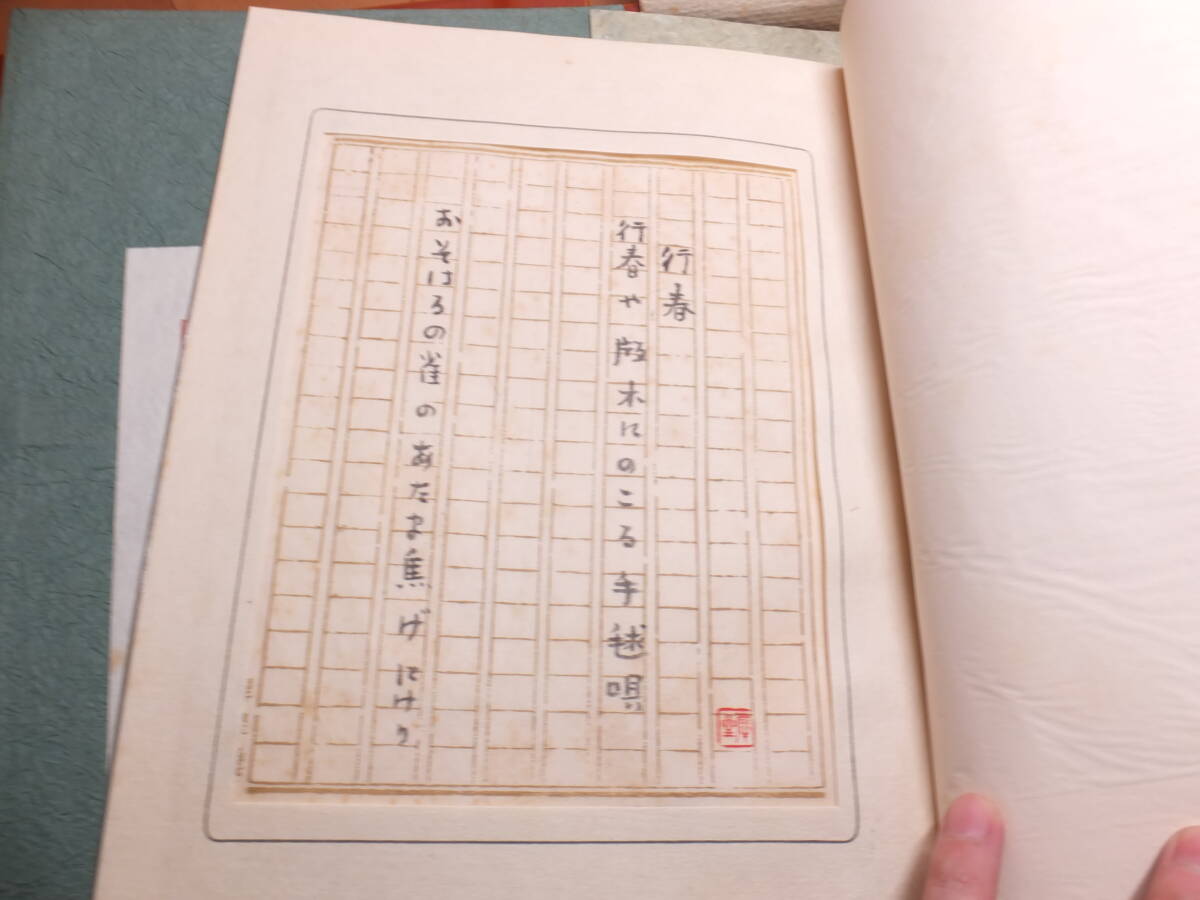 行春
行春や版木にのこる手毬唄
おそはるの雀のあたま焦げにけり